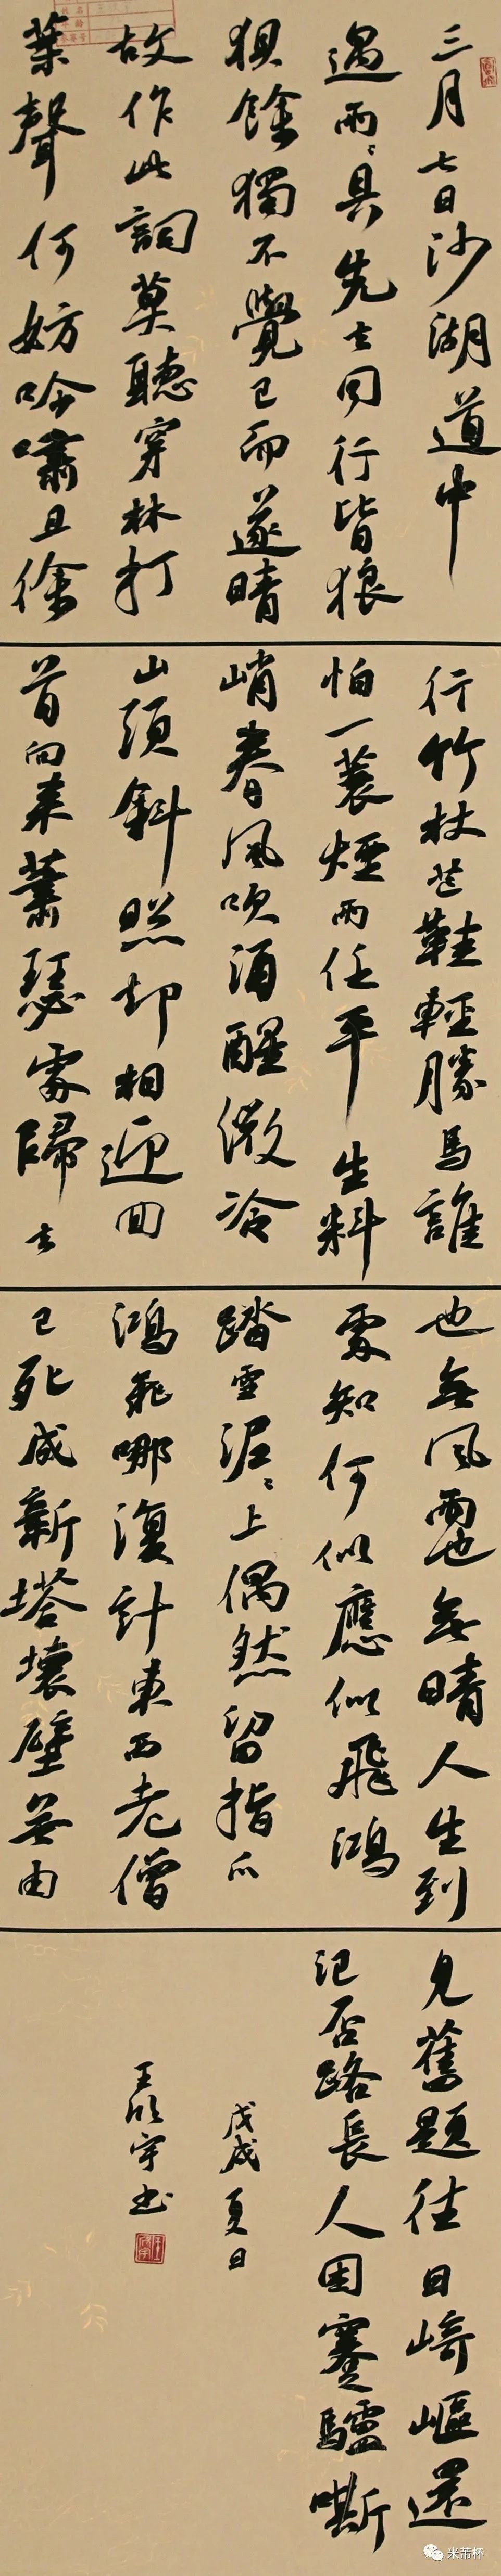 三月七日沙湖道中
遇雨〻具先去同行皆狼
狽餘獨不覺已而遂晴
故作此詞莫聽穿林打
葉聲何妨吟嘯且徐
行竹杖芒鞋輕勝馬誰
怕一蓑煙雨任平生料
峭春風吹酒醒微冷
山頭斜照却相迎回
首向來蕭瑟處歸去
也無風雨也無晴人生到
處知何似應似飛鴻
踏雪泥〻上偶然留指爪
鴻飛哪復計東西老僧
已死成新塔壞壁無由
見舊題往日崎嶇還
記否路長人困蹇驢嘶
戊戌夏日
王宇书
米芾杯